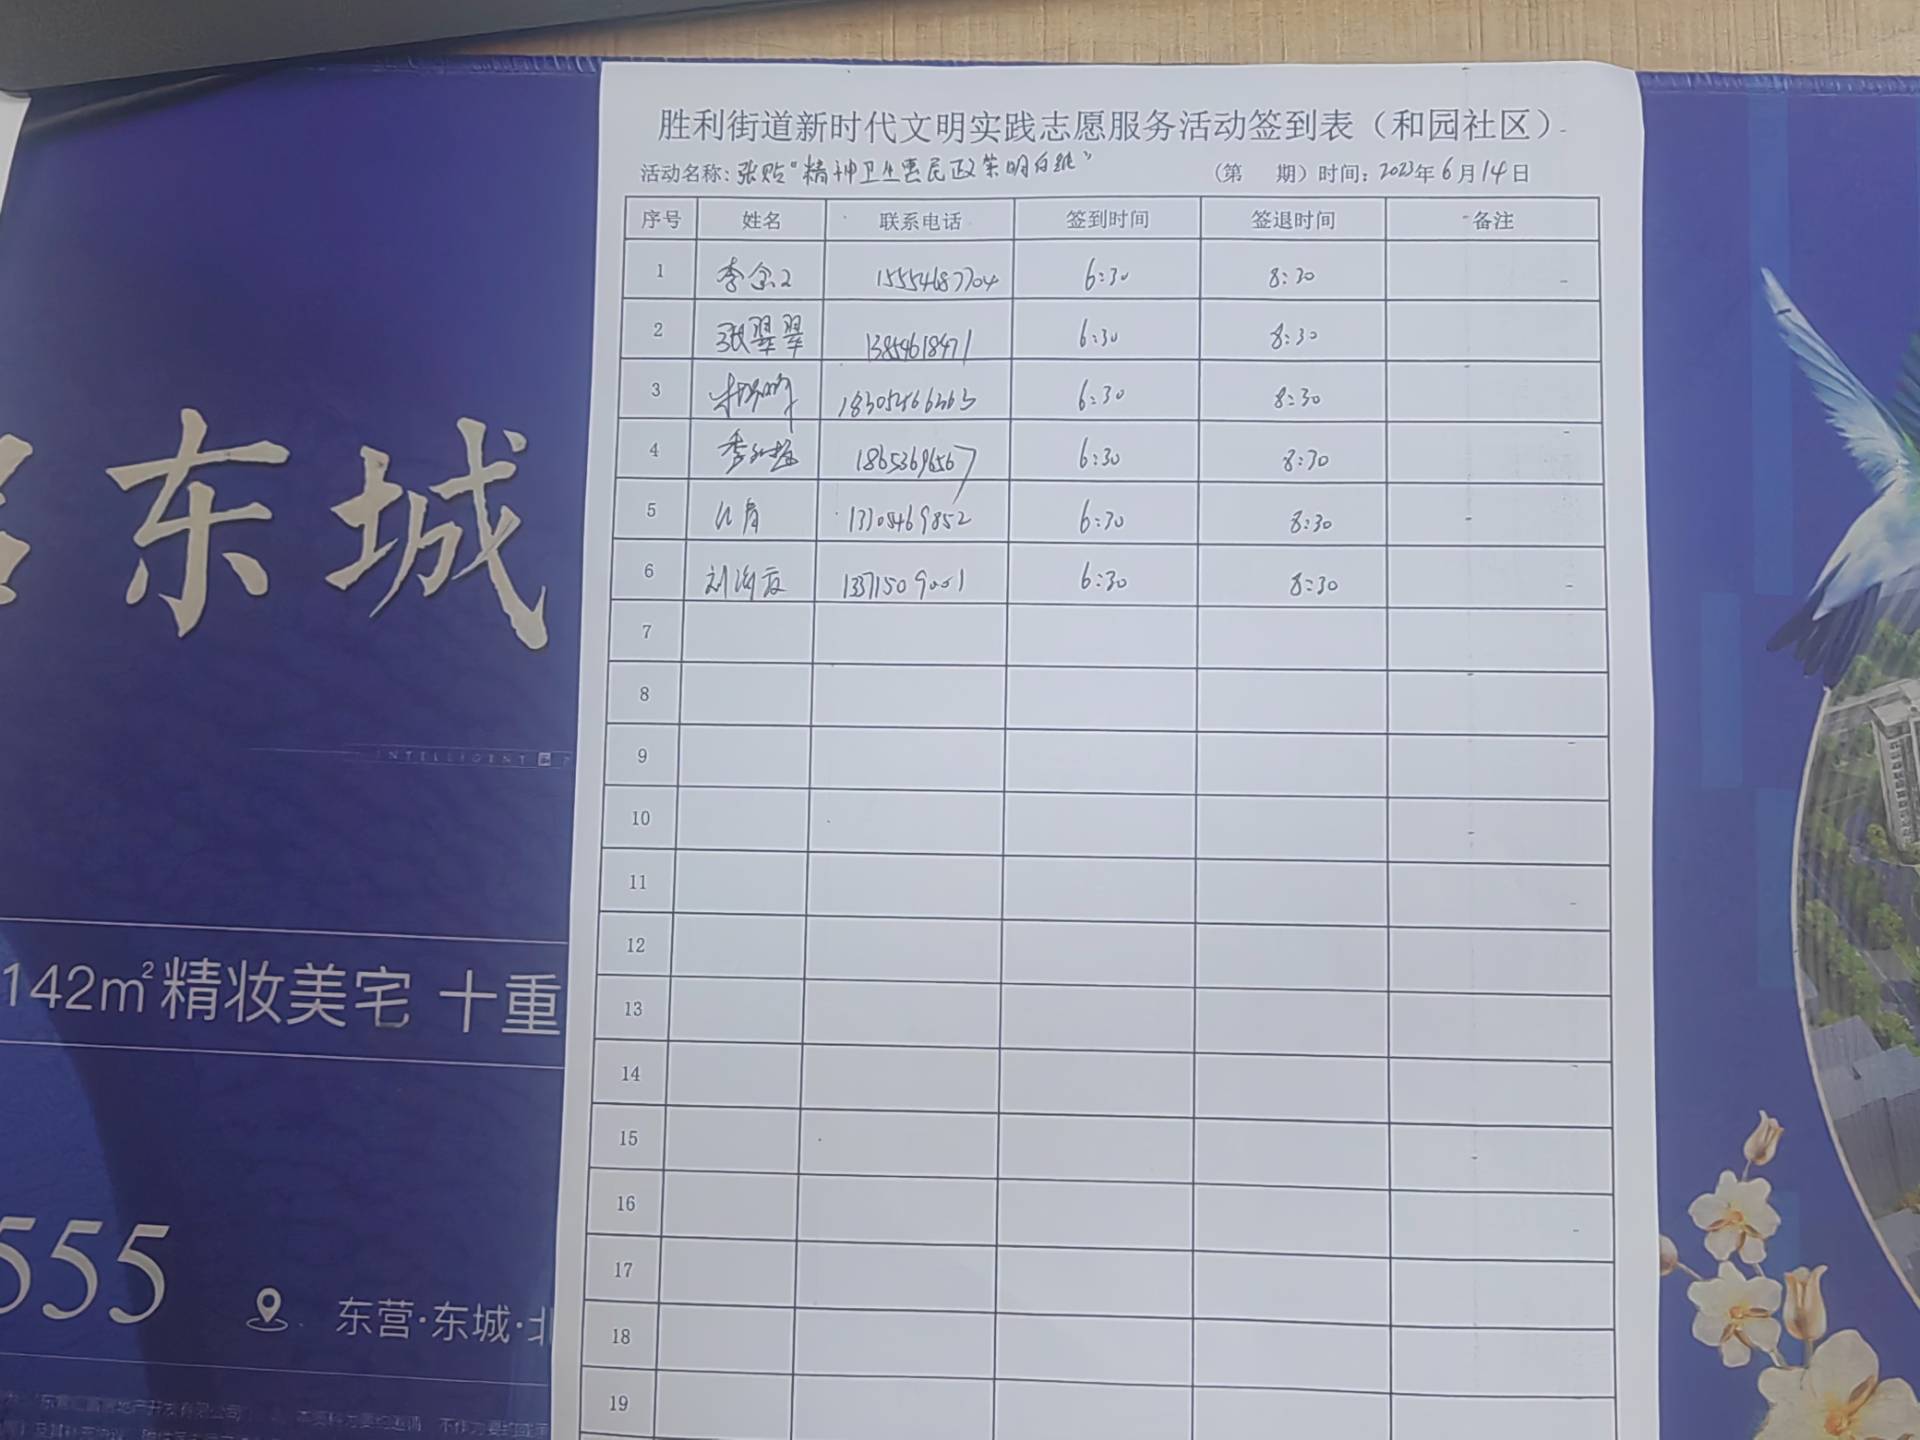 胜利街道新时代文明实践志愿服务活动签到表（和园社区）
活动名称：张贴“精神卫生惠民政策明白纸” （第 期）时间：2023年6月14日
序号 姓名 联系电话 签到时间 签退时间 备注
1 15554687704 6:30 8:30
2 张翠翠 13854618471 6:30 8:30
3 6:30 8:30
4 18653696567 6:30 8:30
5 6:30 8:30
6 13371509001 6:30 8:30
7
8
9
10
11
12
13
14
15
16
17
18
19
东城
INTELLIGENT
142m²精妆美宅 十重
555
东营·东城·北